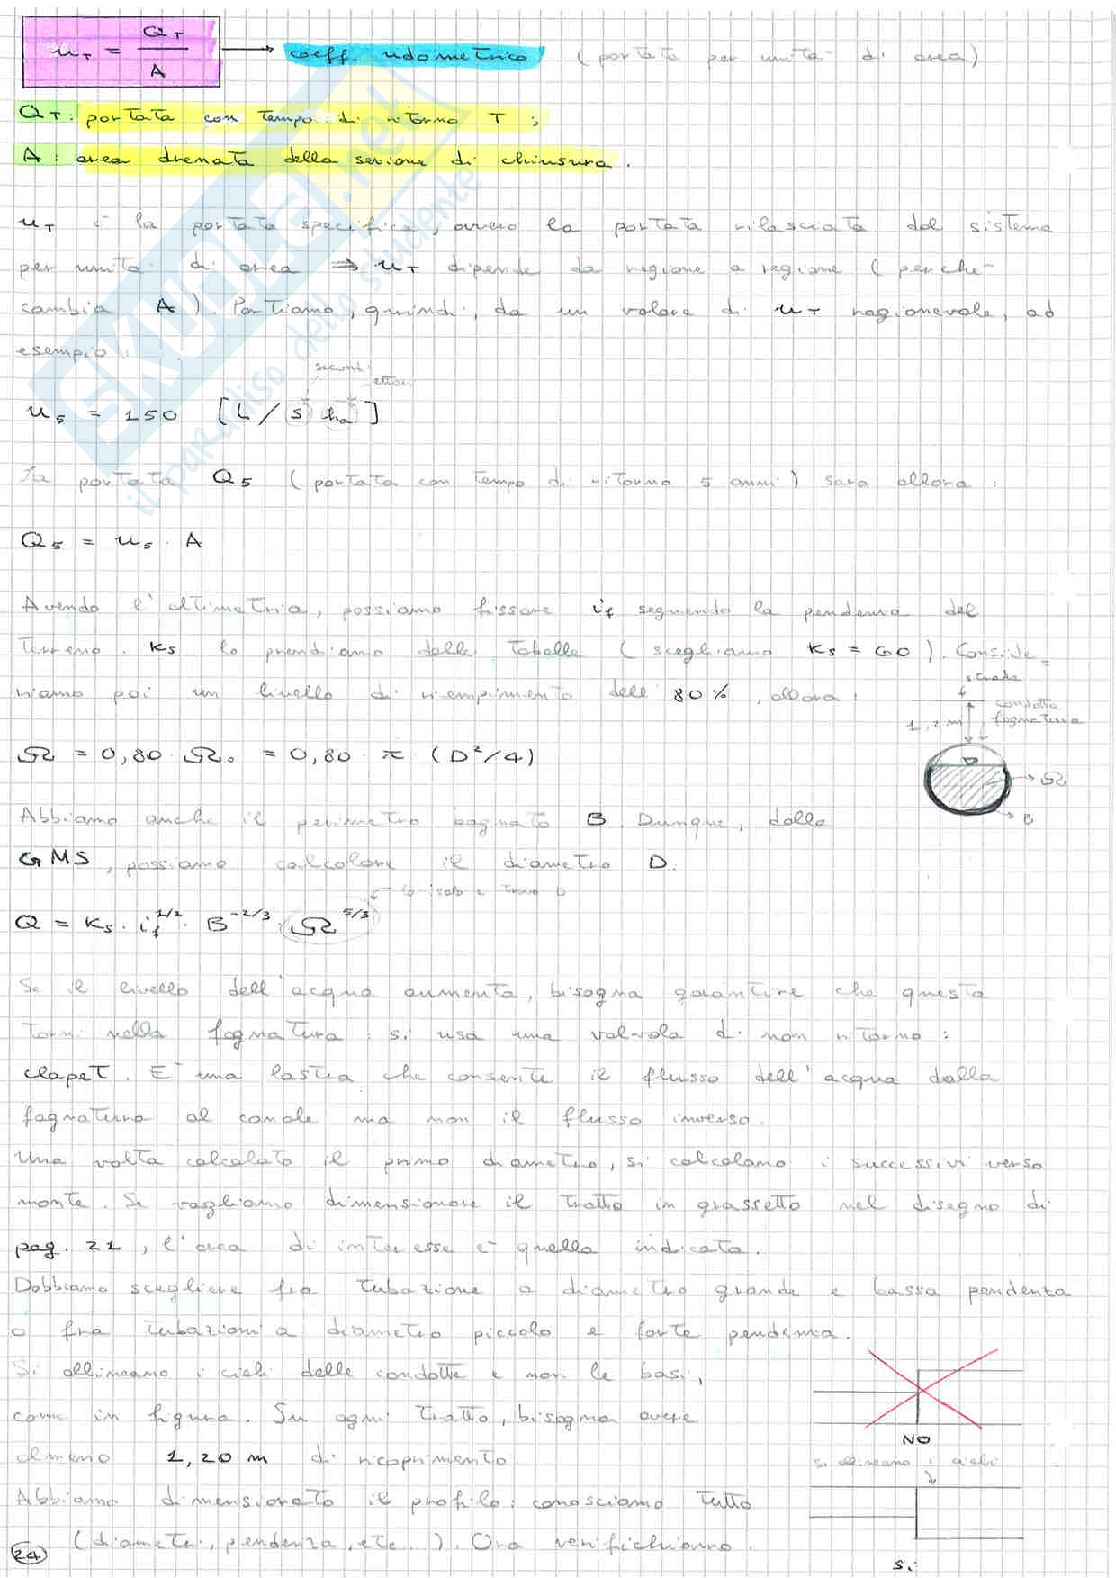 u_T = Q_T / A → coeff. udometrico (portata per unità di area)
Q_T: portata con tempo di ritorno T;
A: area drenata dalla sezione di chiusura.
u_T è la portata specifica, ovvero la portata rilasciata dal sistema
per unità di area ⇒ u_T dipende da regione a regione (perché
cambia A). Partiamo, quindi, da un valore di u_T ragionevole, ad
esempio:
secondi
ettari
u_5 = 150 [L/s ha]
La portata Q_5 (portata con tempo di ritorno 5 anni) sarà allora:
Q_5 = u_5 · A
Avendo l'altimetria, possiamo fissare i_f seguendo la pendenza del
terreno. Ks lo prendiamo dalle Tabelle (scegliamo Ks = 60). Conside-
riamo poi un livello di riempimento dell' 80%, allora:
strada
1,2 m
condotta
fognatura
Ω = 0,80 · Ω_0 = 0,80 π (D²/4)
D
Ω
B
Abbiamo anche il perimetro bagnato B. Dunque, dalla
GMS, possiamo calcolare il diametro D.
lo isolo e trovo D
Q = Ks · i_f^1/2 · B^-2/3 · Ω^5/3
Se il livello dell'acqua aumenta, bisogna garantire che questa
torni nella fognatura: si usa una valvola di non ritorno:
clapet. E' una lastra che consente il flusso dell'acqua dalla
fognatura al canale ma non il flusso inverso.
Una volta calcolato il primo diametro, si calcolano i successivi verso
monte. Se vogliamo dimensionare il tratto in grassetto nel disegno di
pag. 21, l'area di interesse è quella indicata.
Dobbiamo scegliere fra tubazione a diametro grande e bassa pendenza
o fra tubazioni a diametro piccolo e forte pendenza.
Si allineano i cieli delle condotte e non le basi,
come in figura. Su ogni tratto, bisogna avere
almeno 1,20 m di ricoprimento
NO
si allineano i cieli
Abbiamo dimensionato il profilo: conosciamo tutto
(diametri, pendenza, etc..). Ora verifichiamo.
Sì
24
SKUOLA.net
il paradiso dello studente